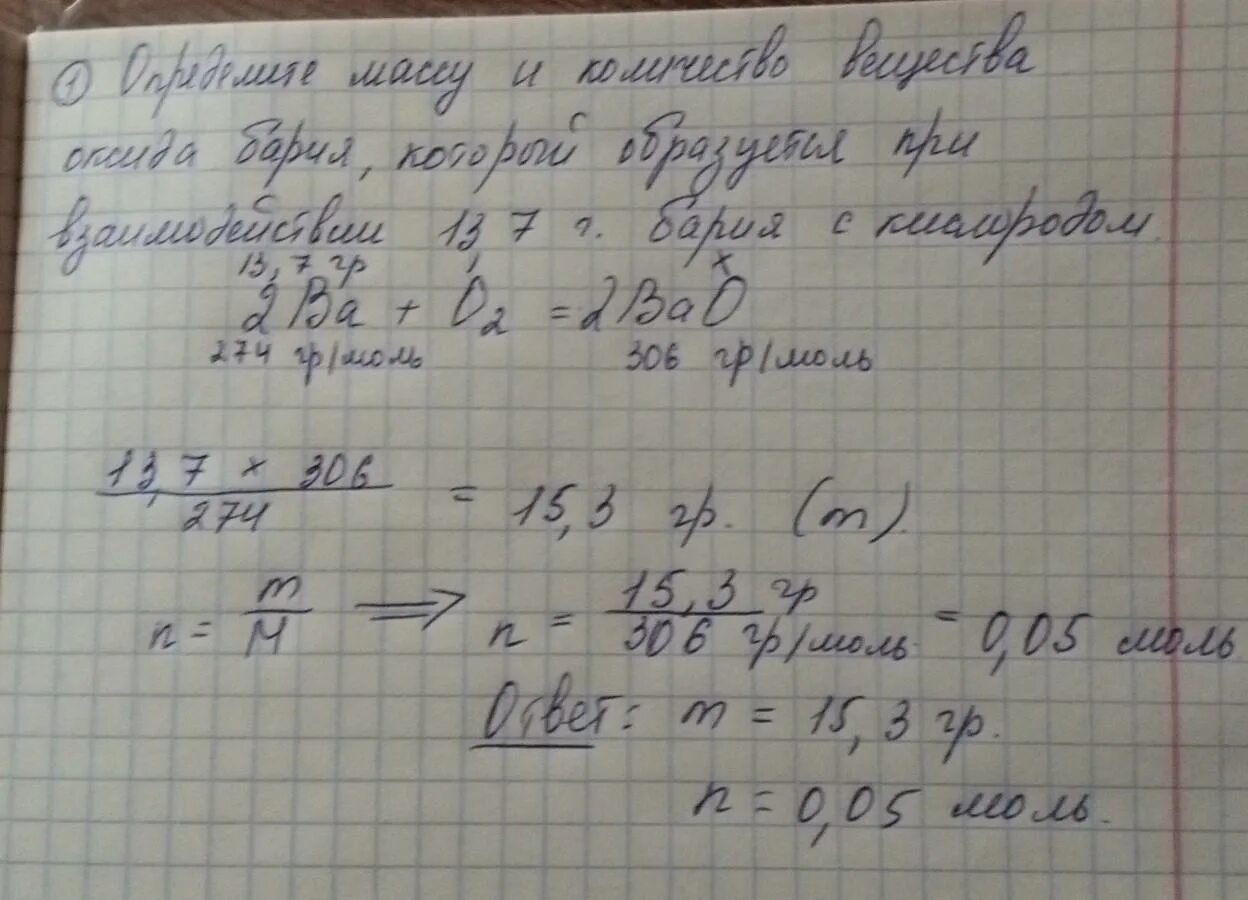 ① Определите массу и количество вещества
оксида бария, который образуется при
взаимодействии 13,7 г. бария с кислородом.
13,7 гр x
2Ba + O₂ = 2BaO
274 гр/моль 306 гр/моль
13,7 × 306
274
= 15,3 гр. (m).
n = m/M ⟹ n = 15,3 гр / 306 гр/моль = 0,05 моль
Ответ: m = 15,3 гр.
n = 0,05 моль.